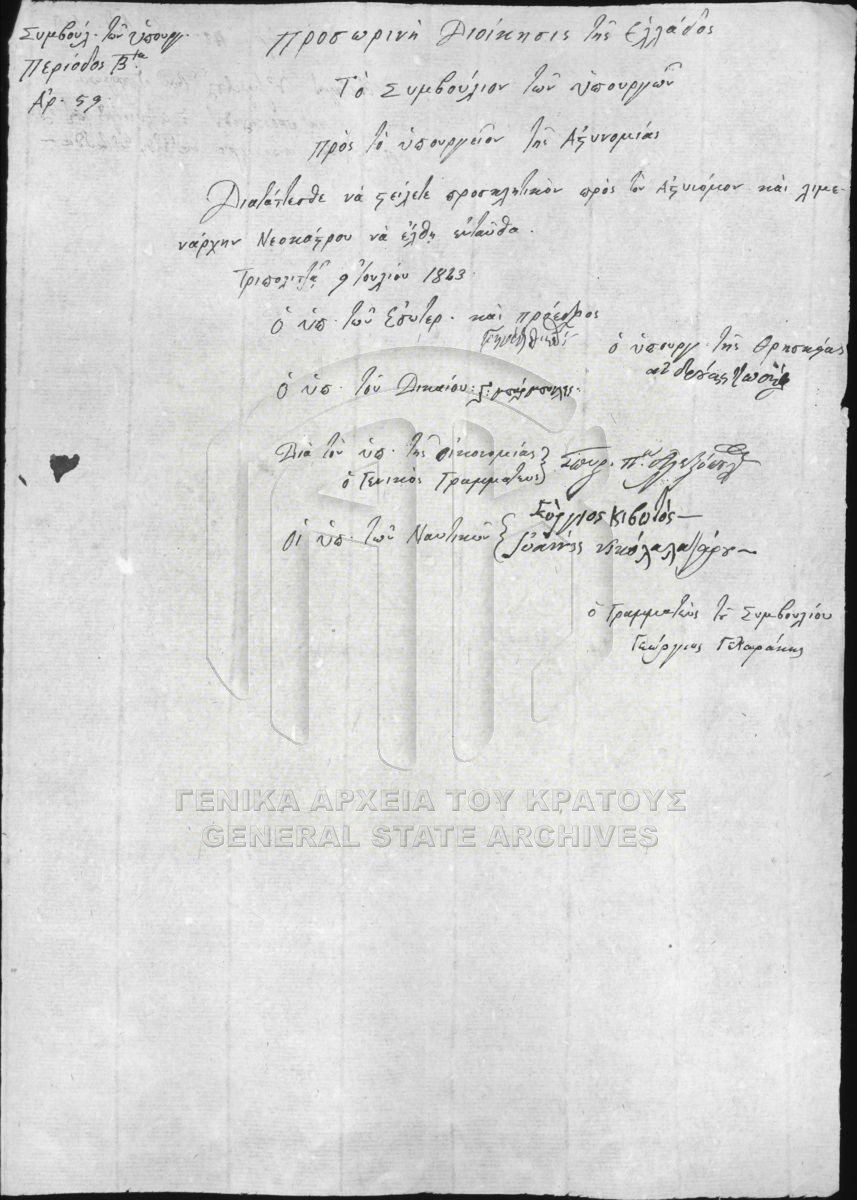 Συμβούλ. τῶν ὑπουργ.
Περίοδος Βα.
Ἀρ. 59
Προσωρινὴ Διοίκησις τῆς Ἑλλάδος
Τὸ Συμβούλιον τῶν ὑπουργῶν
Πρὸς τὸ ὑπουργεῖον τῆς Ἀςυνομίας
Διατάττεσθε νὰ ςείλετε προσκλητικὸν πρὸς τὸν Ἀςυνόμον καὶ λιμε-
νάρχην Νεοκάςρου νὰ ἔλθῃ ἐνταῦθα.
Τριπολιτζᾷ 9 Ἰουλίου 1823.
Ὁ ὑπ. τῶν Ἐσωτερ. καὶ πρόεδρος
ὁ ὑπουργ. τῆς Θρησκείας
Ὁ ὑπ. τοῦ Δικαίου:
Διὰ τὸν ὑπ. τῆς οἰκονομίας
ὁ Γενικὸς Γραμματεὺς
Σπυρ. Π.
οἱ ὑπ. τῶν Ναυτικῶν
Γεόργιος Κιβοτός
Ἰοάννης
ὁ Γραμματεὺς τοῦ Συμβουλίου
Γεώργιος Γελαράκης
ΓΕΝΙΚΑ ΑΡΧΕΙΑ ΤΟΥ ΚΡΑΤΟΥΣ
GENERAL STATE ARCHIVES